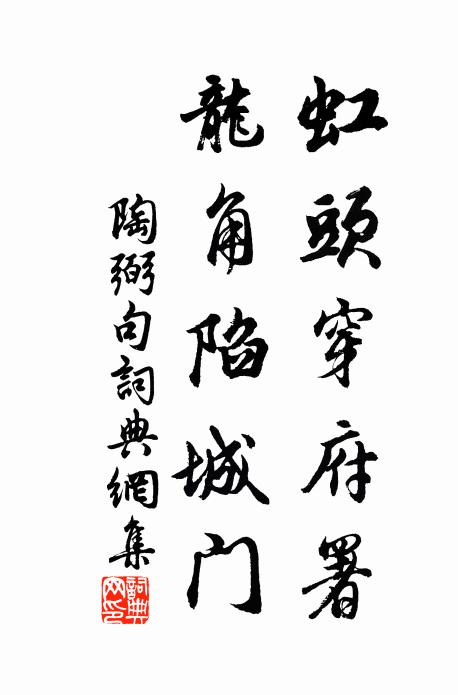 虹頭穿府署
龍角陷城门
陶弼句詞典網集
詞典网印